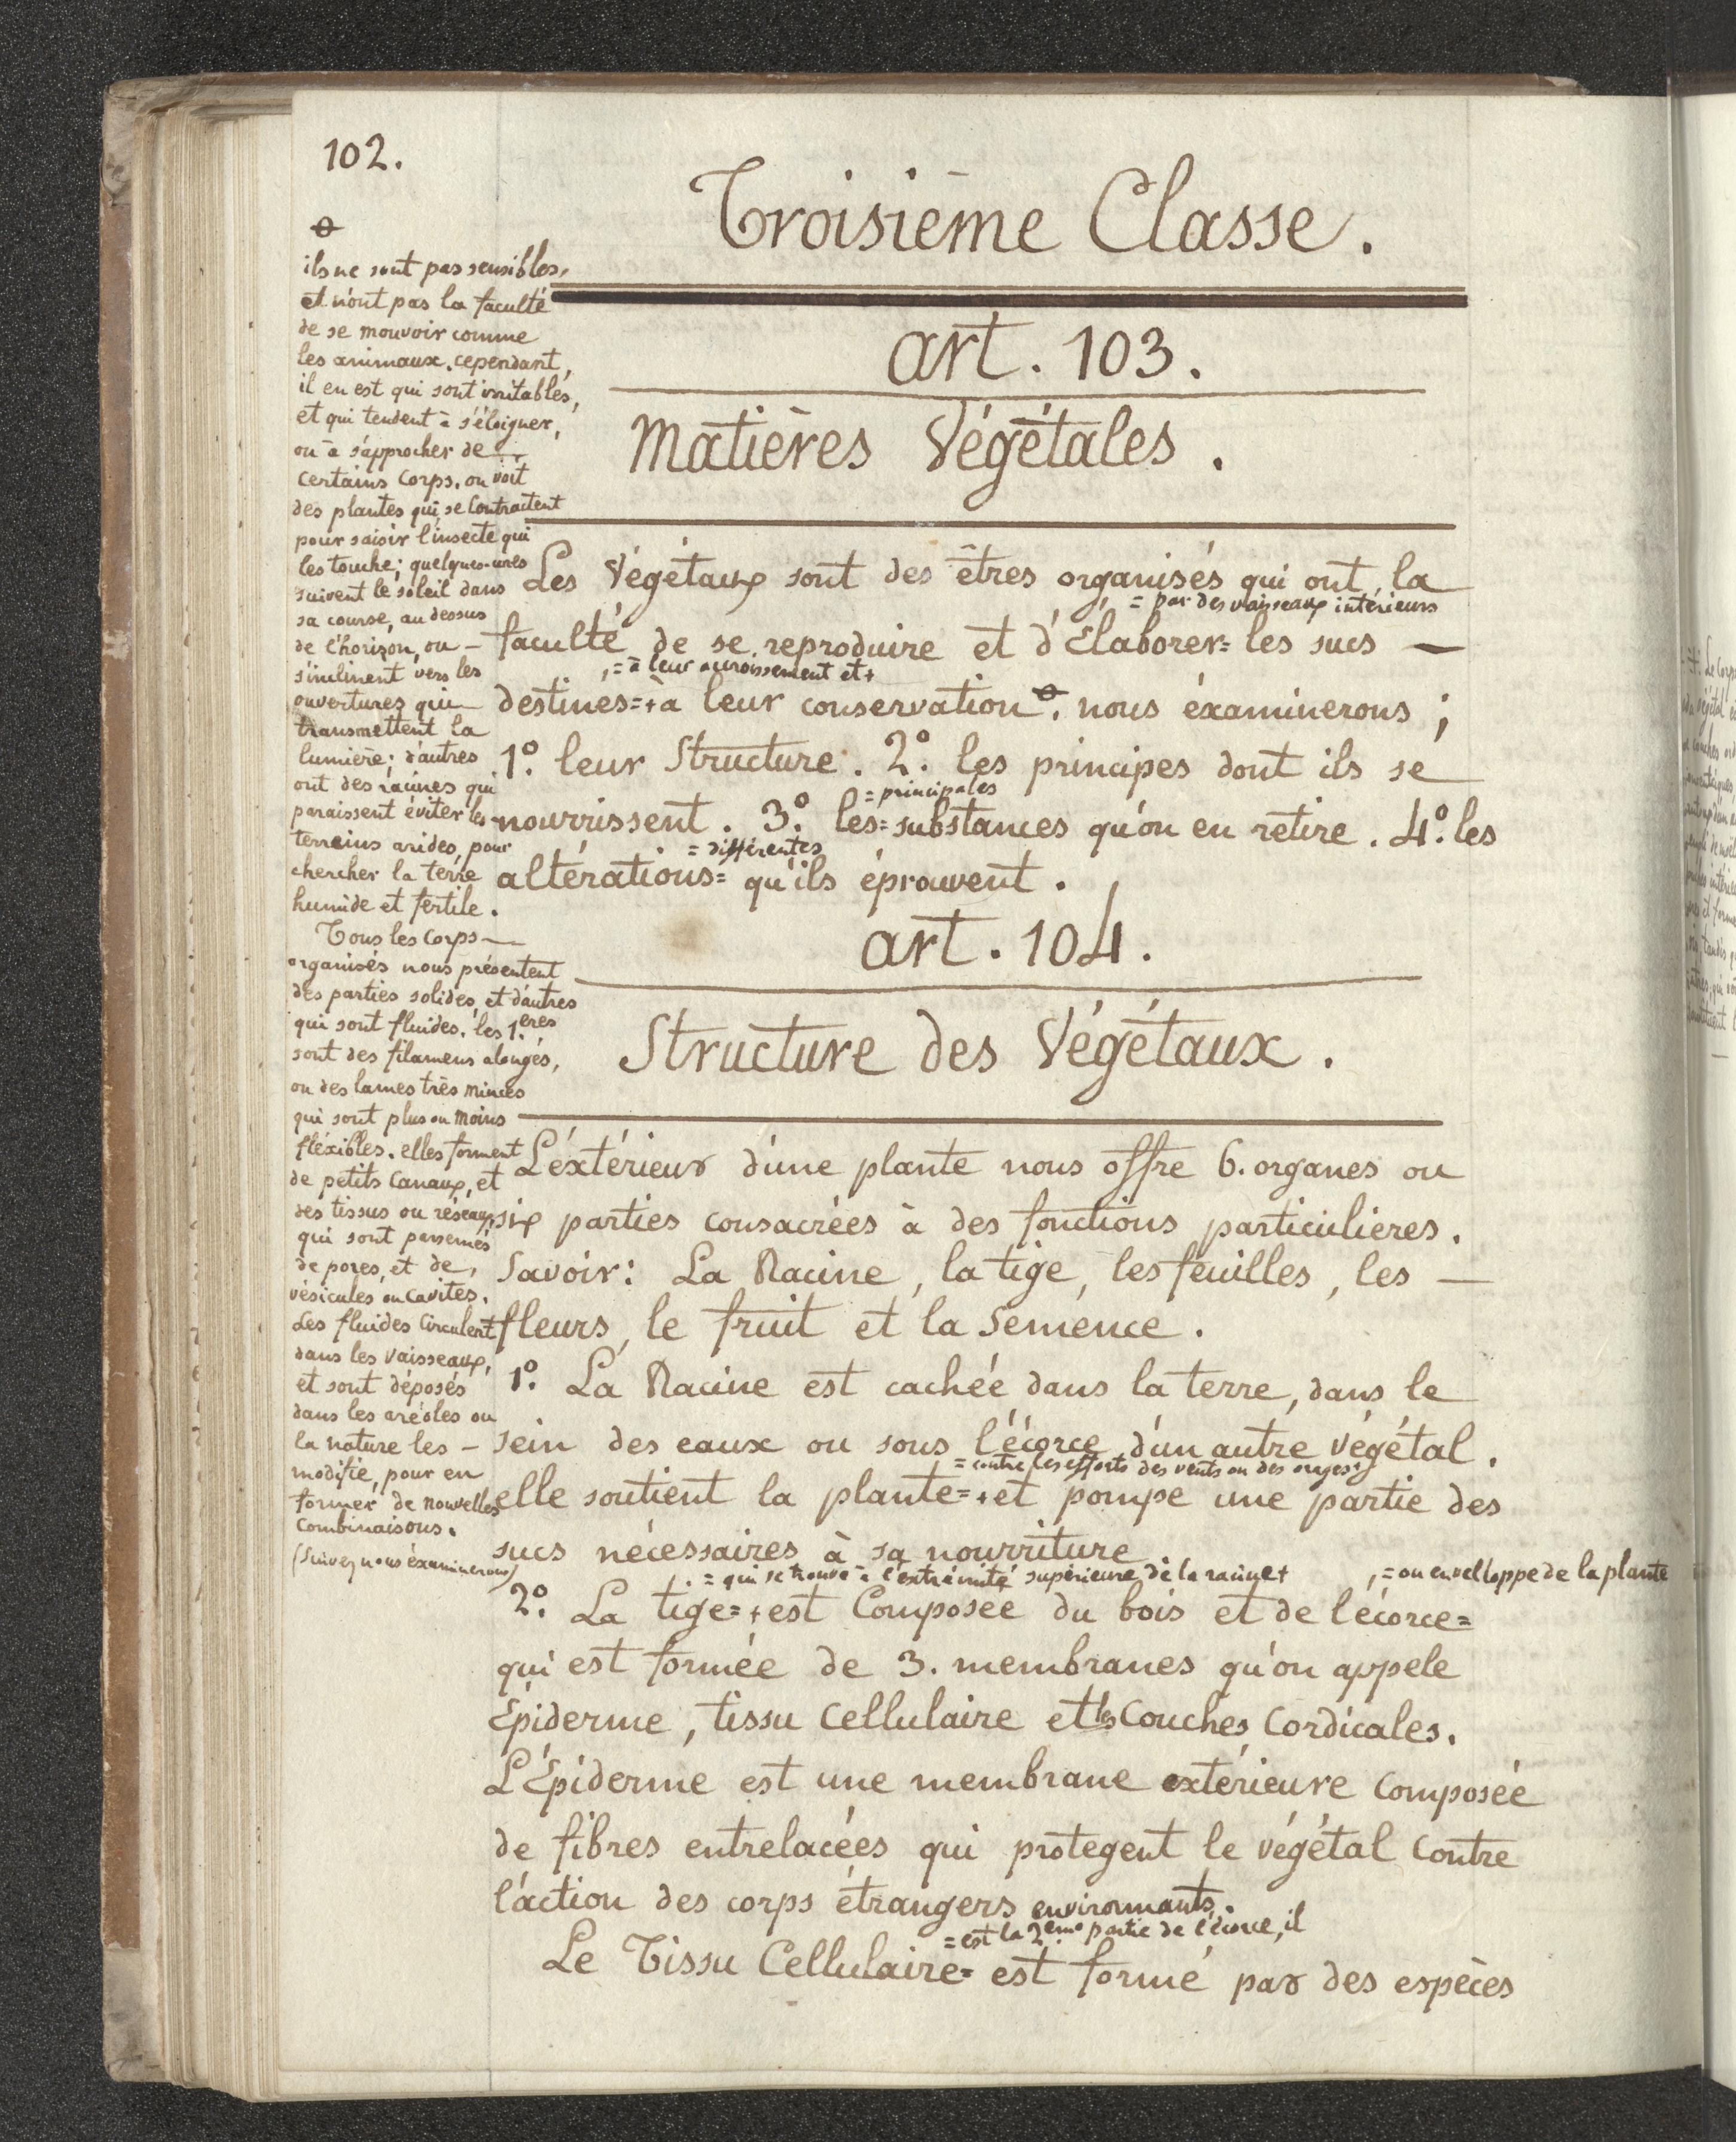 102.
Troisième Classe.
art. 103.
Matières Végétales.
Les Végétaux sont des êtres organisés qui ont la
= par des vaisseaux intérieurs
faculté de se reproduire et d'Elaborer= les sucs —
,= à leur accroissement et+
destines=+à leur conservation ꝋ. nous éxaminerons ;
1.° leur Structure. 2.° les principes dont ils se
= principales
nourrissent. 3.° les= substances qu'on en retire. 4.° les
= différentes
altérations= qu'ils éprouvent.
art. 104.
Structure des Végétaux.
L'éxtérieur d'une plante nous offre 6. organes ou
six parties consacrées à des fonctions particulieres.
Savoir: La Racine, la tige, les feuilles, les —
fleurs, le fruit et la Semence.
1.° La Racine est cachée dans la terre, dans le
sein des eaux ou sous l'écorce d'un autre végétal.
= contre les efforts des vents ou des orages;
elle soutient la plante=+et pompe une partie des
sucs nécessaires à sa nourriture
. = qui se trouve à l'extrémité supérieure de la racine+
,= ou envelloppe de la plante
2.° La tige=+est Composée du bois et de l'écorce=
qui est formée de 3. membranes qu'on appele
Epiderme, tissu Cellulaire et les Couches Cordicales.
L'Épiderme est une membrane extérieure composée
de fibres entrelacées qui protegent le végétal contre
l'action des corps étrangers environnants.
= est la 2.eme partie de l'écorce, il
Le Tissu Cellulaire= est formé par des espèces
ꝋ
ils ne sont pas sensibles,
et n'ont pas la faculté
de se mouvoir comme
les animaux. cependant,
il en est qui sont irritables,
et qui tendent à s'éloigner,
ou à s'approcher de —
certains Corps. on voit
des plantes qui se Contractent
pour saisir l'insecte qui
les touche; quelques-unes
suivent le soleil dans
sa course, au dessus
de l'horizon, ou —
s'inclinent vers les
ouvertures qui —
transmettent la
lumière; d'autres
ont des racines qui
paraissent éviter les
terreins arides, pour
chercher la terre
humide et fertile.
Tous les Corps —
organisés nous présentent
des parties solides, et d'autres
qui sont fluides. les 1.eres
sont des filamens alongés,
ou des lames très minces
qui sont plus ou moins
fléxibles. elles forment
de petits Canaux, et
des tissus ou réseaux,
qui sont parsemés
de pores, et de,
vésicules ou Cavités.
Les fluides Circulent
dans les vaisseaux,
et sont déposés
dans les aréoles ou
la nature les —
modifie, pour en
former de nouvelles
Combinaisons.
(Suivez nous éxaminerons)